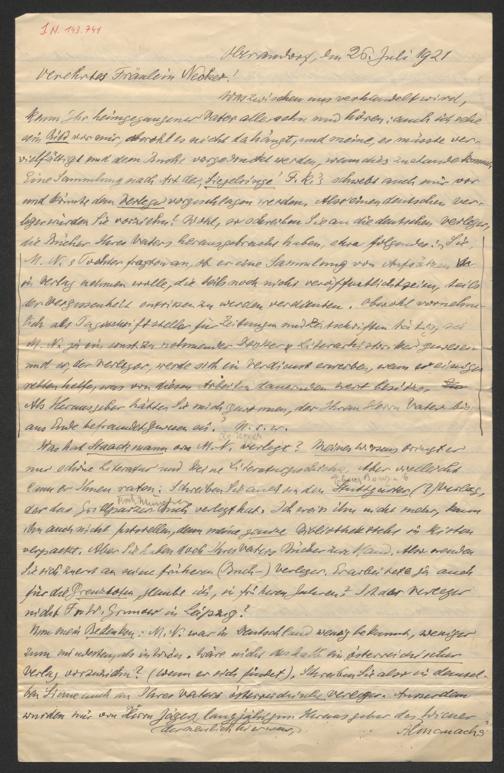 I.N. 143.741
Oberaudorf, den 26. Juli 1921
Verehrtes Fräulein Necker!
Was zwischen uns verhandelt wird,
kann Ihr heimgegangener Vater alles sehn und hören: auch ich sehe
sein Bild vor mir, obwohl es nicht dahängt, und meine, es müsste ver-
vielfältigt und dem Buche vorgebunden werden, wenn das zustande
Eine Sammlung nach Art der Siegelringe F. K.s schwebt auch mir vor
und könnte dem Verleger vorgeschlagen werden. Also einen deutschen Ver-
leger würden Sie vorziehn? Wohl, so schreiben Sie an die deutschen Verleger,
die Bücher Ihres Vaters herausgebracht haben, etwa folgendes: „Sie,
M. N.s Tochter fragten an, ob er eine Sammlung von Aufsätzen
in Verlag nehmen wolle, die teils noch nicht veröffentlicht seien, teils
der Vergessenheit entrissen zu werden verdienten. Obwohl vornehm-
lich als Tagesschriftsteller für Zeitungen und Zeitschriften tätig, sei
M. N. ja ein ernst zu nehmender Denker u. Literarhistoriker gewesen
und er, der Verleger, werde sich ein Verdienst erwerben, wenn er einiges
retten helfe, was von diesen Arbeiten dauernden Wert besitze.
Als Herausgeber hätten Sie mich gewonnen, der Ihrem Herrn Vater bis
ans Ende befreundet gewesen sei." U. s. w.
Was hat Haackmann von M. N. verlegt? Meines Wissens bringt er
nur schöne Literatur und keine Literaturgeschichte. Aber vielleicht
kann er Ihnen raten. Schreiben Sie auch an den Stuttgarter Verlag,
der das Grillparzer Buch verlegt hat. Ich weiss ihn nicht mehr, kann
ihn auch nicht feststellen, denn meine ganze Bibliothek steht in Kisten
verpackt. Aber Sie haben doch Ihres Vaters Bücher zur Hand. Also wenden
Sie sich zuerst an seine früheren (Buch-) Verleger. Er arbeitete ja auch
für die Grenzboten, glaube ich, in früheren Jahren? Ist der Verleger
nicht Fr. W. Grunow in Leipzig?
Nun mein Bedenken: M. N. war in Deutschland wenig bekannt, weniger
zum mindesten, als in Wien. Wäre nicht deshalb ein österreichischer
Verlag vorzuziehn? (wenn er sich findet). Schreiben Sie also in demsel-
ben Sinne auch an Ihres Vaters österreichische Verleger. Ausserdem
würden mir von Herrn Jäger, langjährigem Herausgeber des Wiener
Almanachs
der neulich hier war,